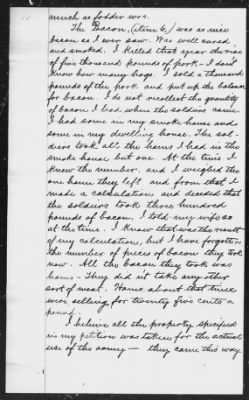 much as fodder was.
The Bacon, (Item 6,) was as nice
bacon as I ever saw. Was well cured
and smoked. I killed that year during
of five thousand pounds of pork - I don't
know how many hogs. I sold a thousand
pounds of the pork and put up the balance
for bacon. I do not recollect the quantity
of bacon I had when the soldiers came.
I had some in my smoke house and
some in my dwelling house. The sol-
diers took all the hams I had in the
smoke house but one. At the time I
knew the number, and I weighed the
one ham they left and from that I
made a calculation and decided that
the soldiers took three hundred
pounds of bacon. I told my wife so
at the time. I know that was the result
of my calculation, but I have forgotten
the number of pieces of bacon they took
now. All the bacon they took was
hams - They did not take any other
sort of meat. Hams about that time
were selling for twenty five cents a
pound.
I believe all the property specified
in my petition was taken for the actual
use of the army - they came this way